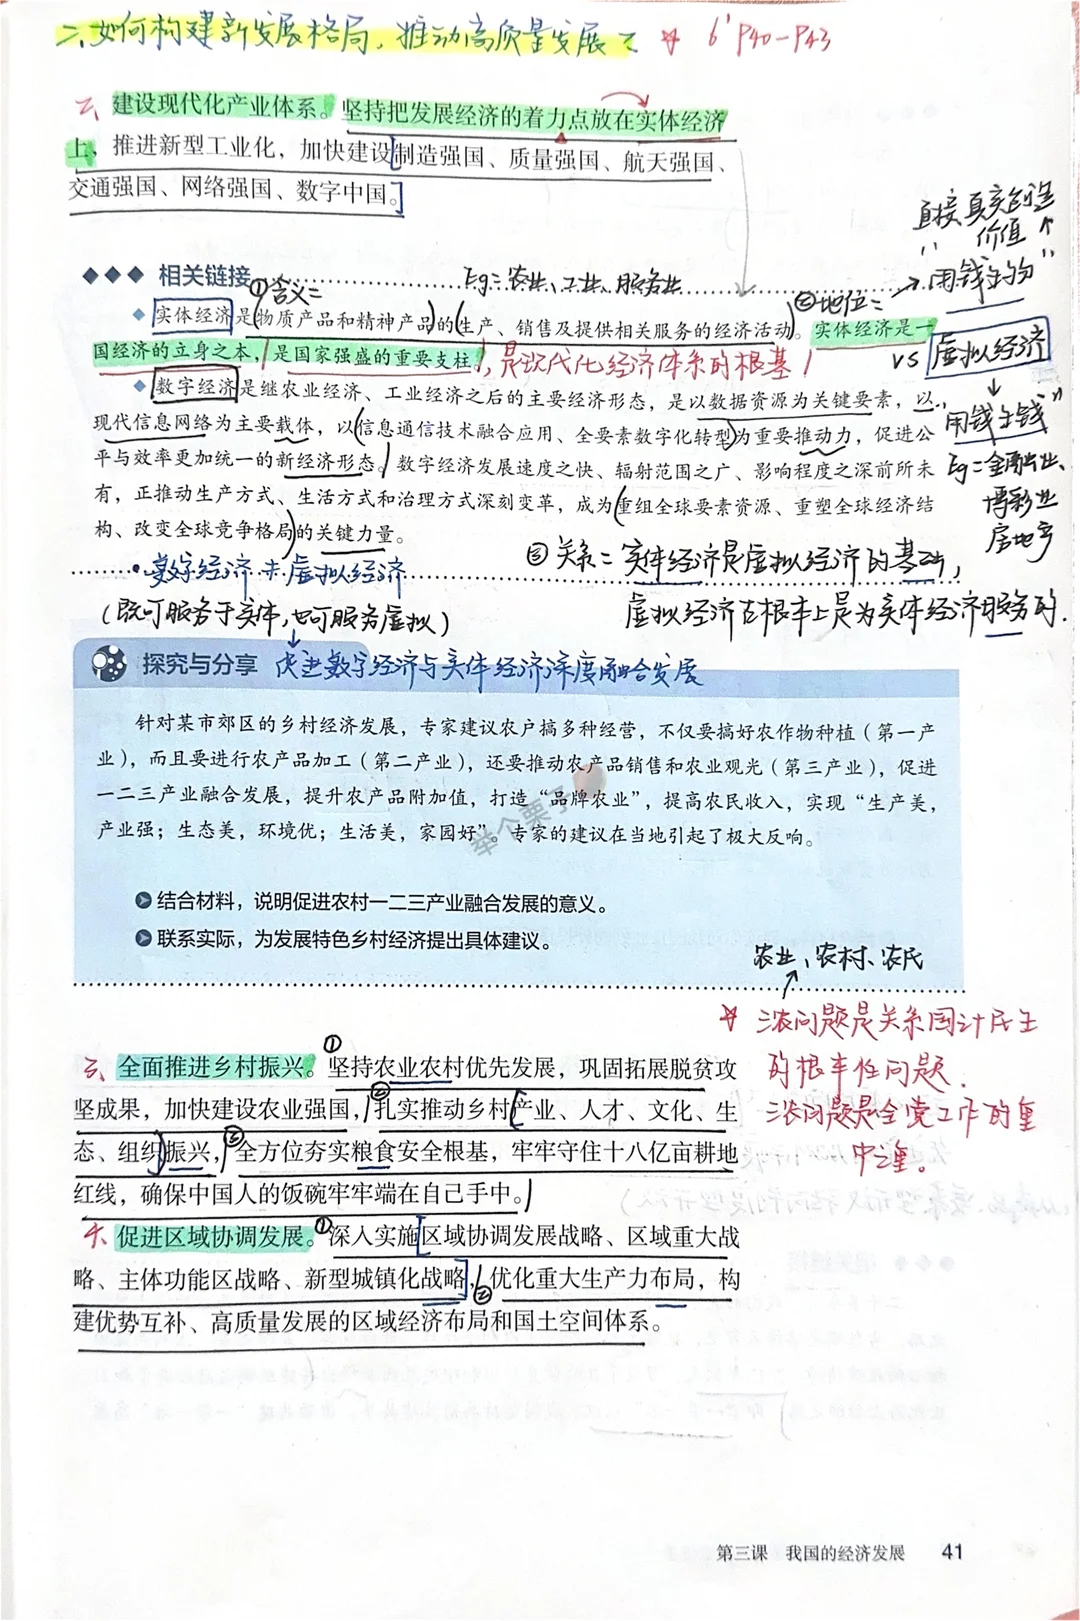 二、如何构建新发展格局,推动高质量发展? ☆ 6' P40-P43
二、建设现代化产业体系。坚持把发展经济的着力点放在实体经济
上,推进新型工业化,加快建设[制造强国、质量强国、航天强国、
交通强国、网络强国、数字中国。]
直接真实创造
价值
◆◆◆ 相关链接
①含义:
Eg:农业、工业、服务业
②地位:
"用钱生物"
◆ 实体经济是(物质产品和精神产品)的(生产、销售及提供相关服务的经济活动)。实体经济是一
国经济的立身之本,是国家强盛的重要支柱,是现代化经济体系的根基
VS 虚拟经济
◆ 数字经济是继农业经济、工业经济之后的主要经济形态,是以数据资源为关键要素,以
现代信息网络为主要载体,以(信息通信技术融合应用、全要素数字化转型)为重要推动力,促进公
平与效率更加统一的新经济形态。数字经济发展速度之快、辐射范围之广、影响程度之深前所未
有,正推动生产方式、生活方式和治理方式深刻变革,成为(重组全球要素资源、重塑全球经济结
构、改变全球竞争格局)的关键力量。
"用钱生钱"
Eg:金融业、
博彩业
房地产
③关系:实体经济是虚拟经济的基础,
虚拟经济在根本上是为实体经济服务的.
·数字经济≠虚拟经济
(既可服务于实体,也可服务虚拟)
探究与分享 促进数字经济与实体经济深度融合发展
针对某市郊区的乡村经济发展,专家建议农户搞多种经营,不仅要搞好农作物种植(第一产
业),而且要进行农产品加工(第二产业),还要推动农产品销售和农业观光(第三产业),促进
一二三产业融合发展,提升农产品附加值,打造“品牌农业”,提高农民收入,实现“生产美,
产业强;生态美,环境优;生活美,家园好”。专家的建议在当地引起了极大反响。
举个栗子
结合材料,说明促进农村一二三产业融合发展的意义。
联系实际,为发展特色乡村经济提出具体建议。
农业、农村、农民
☆ 三农问题是关系国计民生
的根本性问题.
三农问题是全党工作的重
中之重。
三、全面推进乡村振兴。①坚持农业农村优先发展,巩固拓展脱贫攻
坚成果,加快建设农业强国,②扎实推动乡村[产业、人才、文化、生
态、组织]振兴,③全方位夯实粮食安全根基,牢牢守住十八亿亩耕地
红线,确保中国人的饭碗牢牢端在自己手中。
4、促进区域协调发展。①深入实施[区域协调发展战略、区域重大战
略、主体功能区战略、新型城镇化战略],②优化重大生产力布局,构
建优势互补、高质量发展的区域经济布局和国土空间体系。
第三课 我国的经济发展 41